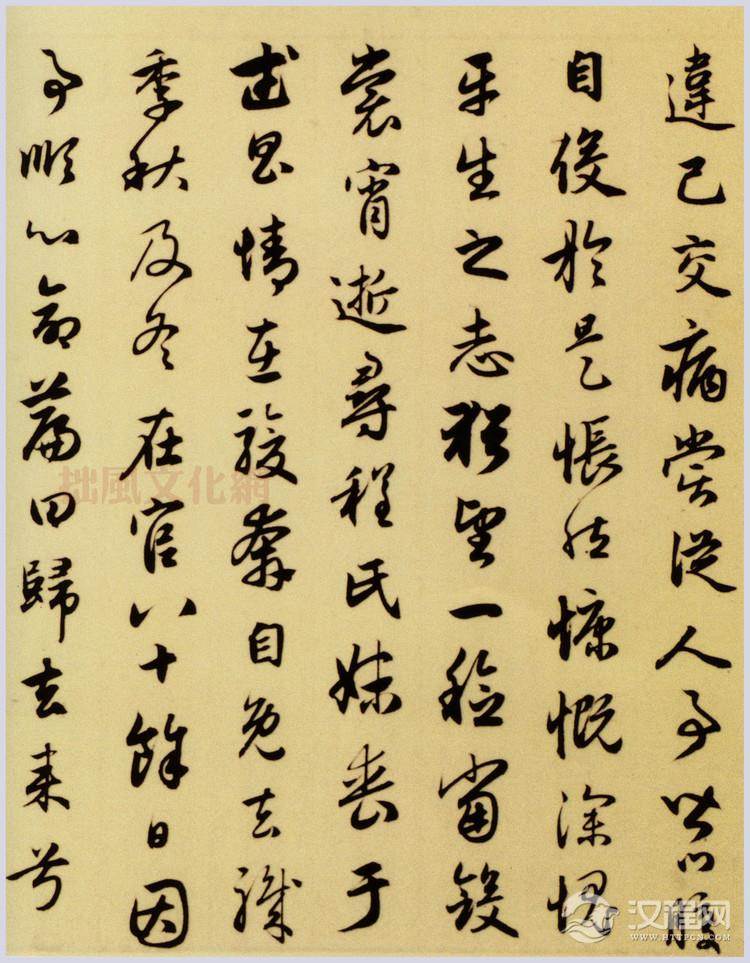 違己交病嘗從人事皆口腹
自役於是悵然慷慨深愧
平生之志猶望一稔當斂
裳宵逝尋程氏妹喪于
武昌情在駿奔自免去職
季秋及冬在官八十餘日因
事順心命篇曰歸去來兮
拙風文化網
汉程网
WWW.HTTPCN.COM